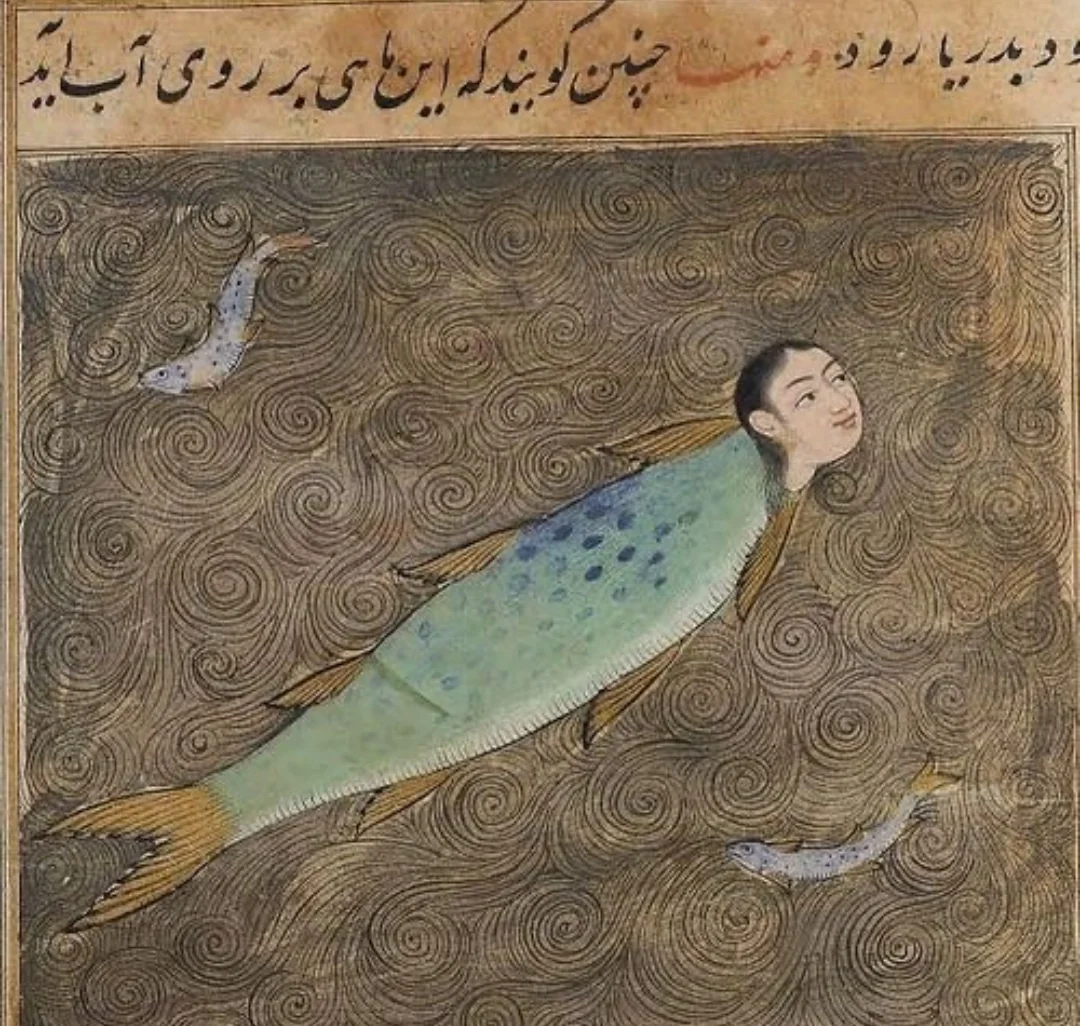 ود بدریا رود ومنها چنین گویند که این ماهی بر روی آب آید